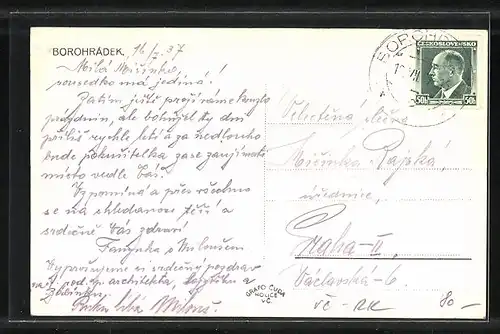 BOROHRÁDEK. 16/7. 37
Milá Mičinko,
sousedko má jediná!
Zatím ještě prožíváme kouzlo
prázdnin, ale bohužel ty dny
příliš rychle letí a za nedlouho
bude pokušitelka zase zaujímati
místo vedle Vás!
Vzpomíná a přes všechno
se na shledanou těší a
srdečně Vás zdraví
Fanynka s Milošem
Vyprošujeme si srdečný pozdrav
architekta,
Ruku líbá Miloš.
BOROH
ČESKOSLOVENSKO
50h 50h
Velectěná slečna
Mičinka Rajská,
úřednice,
Praha-II.
Václavská-6.
GRAFO ČUDA
HOLICE
V.Č.
VČ - RK 80-